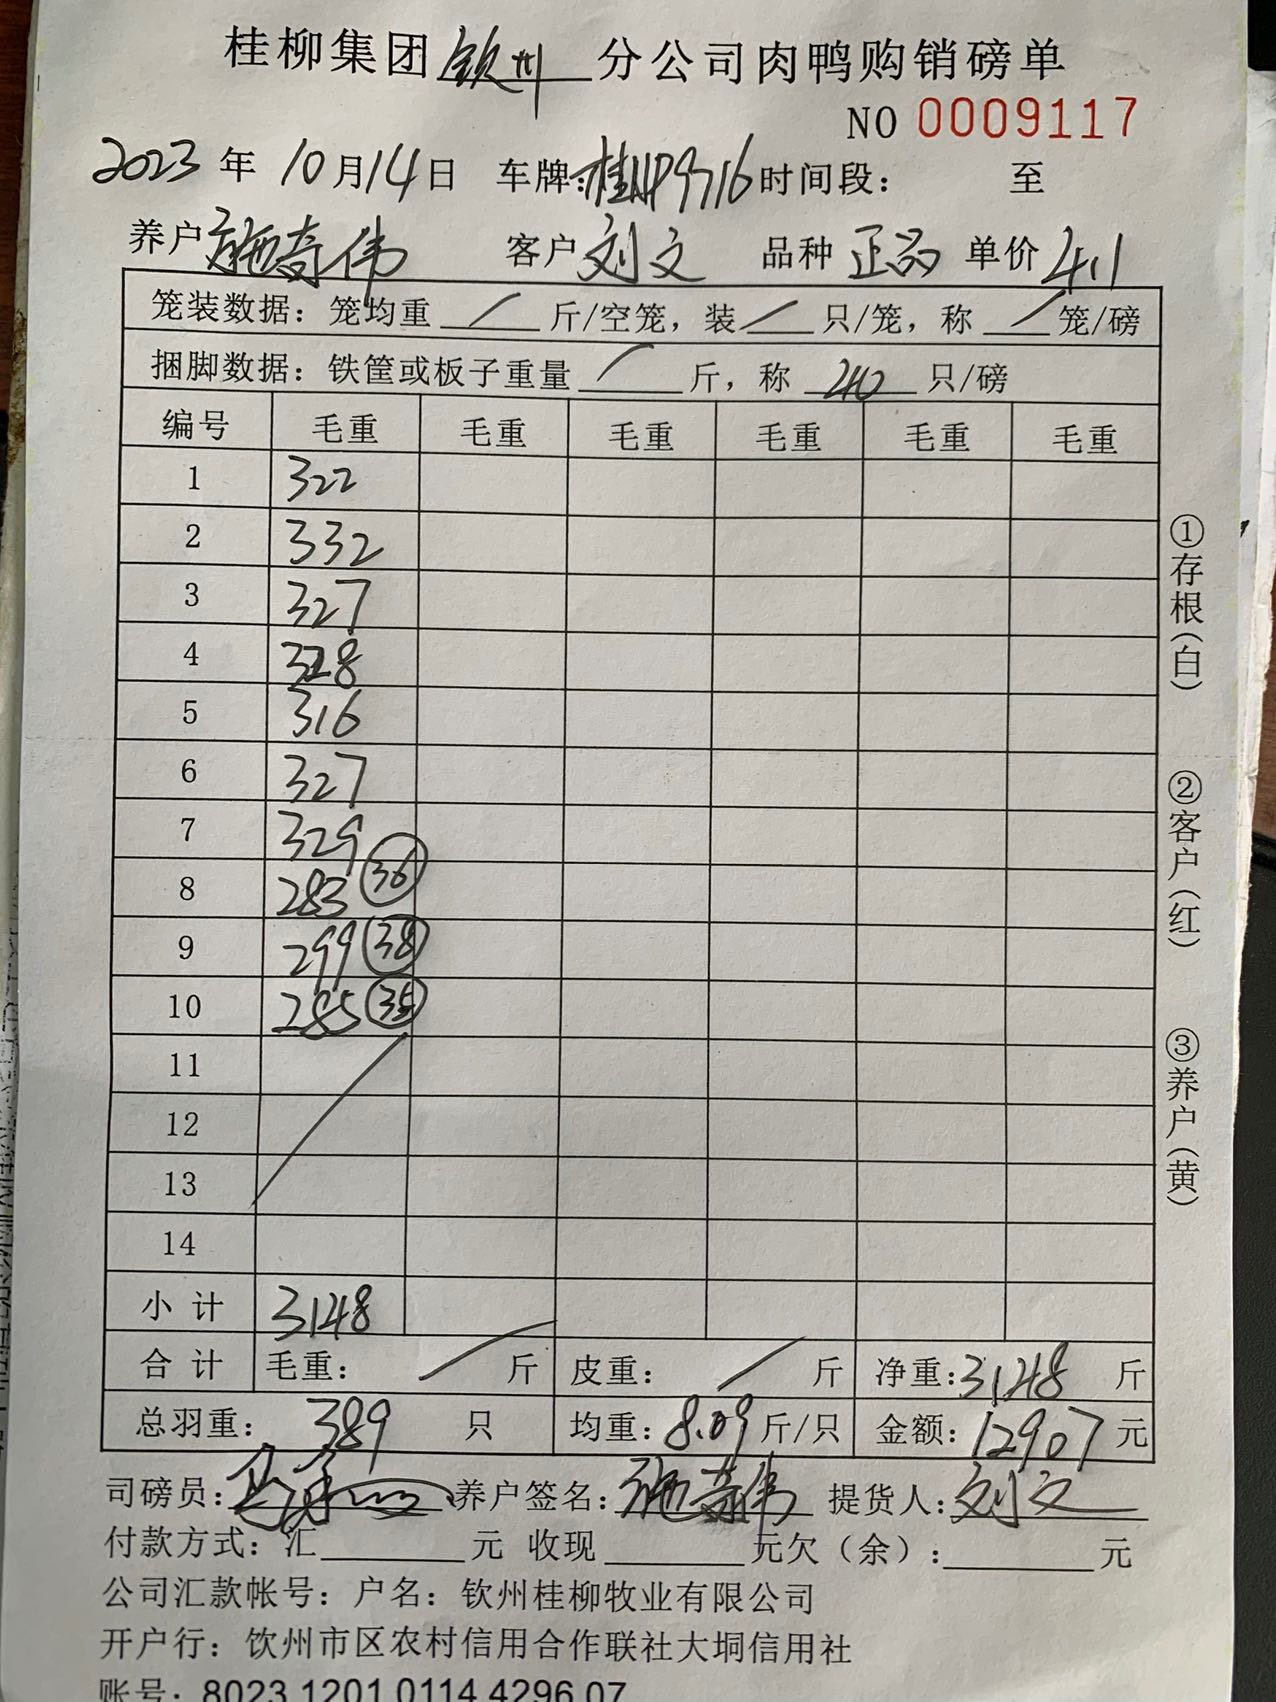 桂柳集团 钦州 分公司肉鸭购销磅单
NO 0009117
2023 年 10月14日 车牌:桂NP9716 时间段: 至
养户 施奇伟 客户 刘文 品种 正品 单价 4.1
笼装数据: 笼均重 / 斤/空笼, 装 / 只/笼, 称 / 笼/磅
捆脚数据: 铁筐或板子重量 / 斤, 称 40 只/磅
编号 毛重 毛重 毛重 毛重 毛重 毛重
1 322
2 332
3 327
4 328
5 316
6 327
7 329
8 283 36
9 299 38
10 285 35
11
12
13
14
小计 3148
合计 毛重: / 斤 皮重: / 斤 净重:3148 斤
总羽重: 389 只 均重:8.09斤/只 金额:12907元
司磅员: 养户签名:施奇伟 提货人:刘文
付款方式: 汇 元 收现 元欠(余): 元
公司汇款帐号: 户名: 钦州桂柳牧业有限公司
开户行: 钦州市区农村信用合作联社大垌信用社
账号: 8023 1201 0114 4296 07
①存根(白)
②客户(红)
③养户(黄)